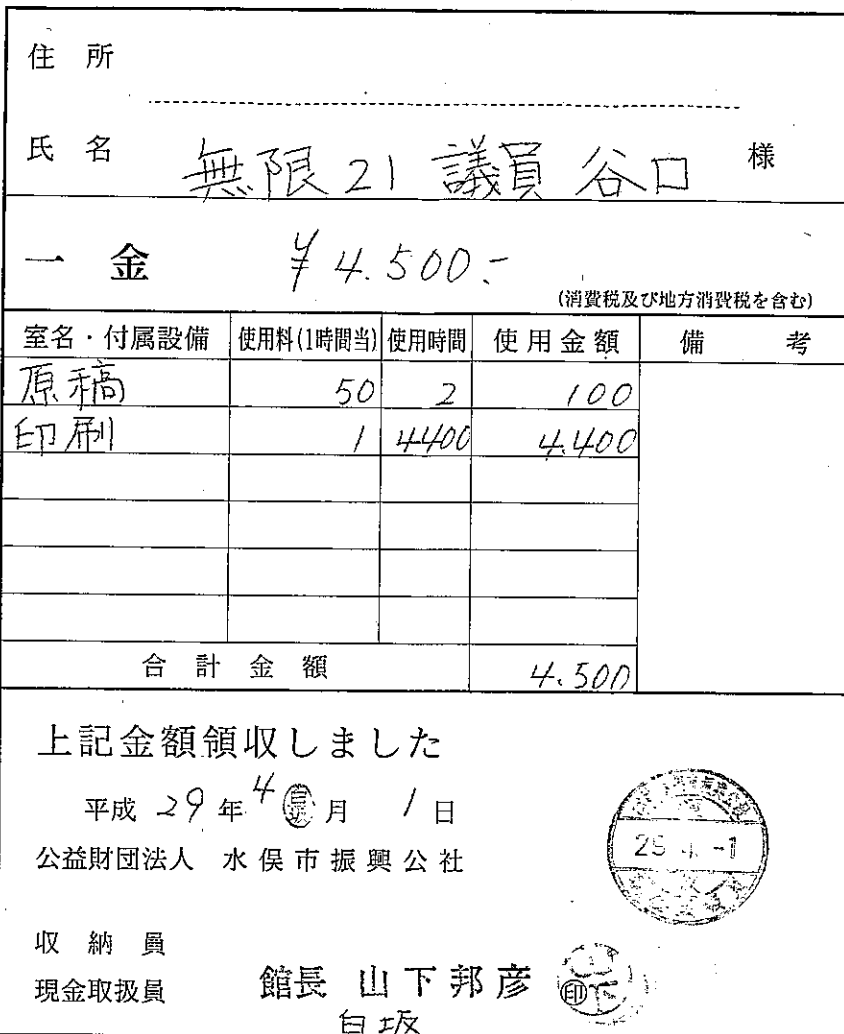 住 所
氏 名 無限21 議員 谷口 様
一 金 ¥4.500.-
(消費税及び地方消費税を含む)
室名・付属設備 使用料(1時間当) 使用時間 使用金額 備 考
原稿 50 2 100
印刷 1 4400 4.400
合 計 金 額 4.500
上記金額領収しました
平成 29 年 4 月 1 日
公益財団法人 水俣市振興公社
収 納 員
現金取扱員 館長 山下邦彦 印
白坂